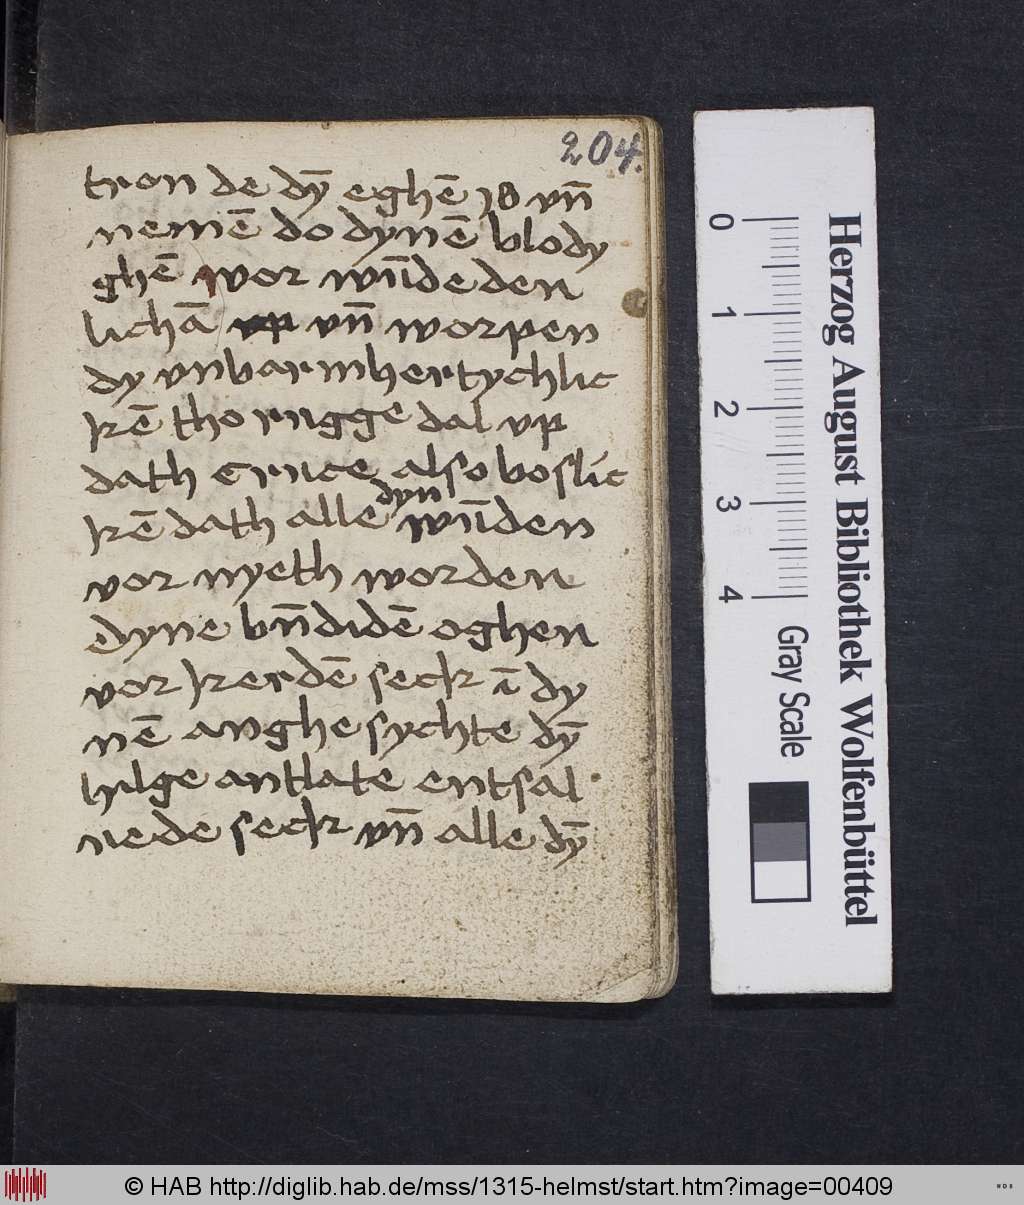 204.
tron de dȳ eghē is vn̄
nemē do dynē blody
ghē vor wn̄deden
lichā vp vn̄ worpen
dy vnbarmhertychlic
kē tho rugge dal vp
dath cruce also boslic
kē dath alle dyn wn̄den
vor nyeth worden
dyne bn̄didē oghen
vor kerdē seck ī dy
nē anghesychte dȳ
hilge antlate entsal
nede seck vn̄ alle dȳ
0 1 2 3 4
Gray Scale
Herzog August Bibliothek Wolfenbüttel
© HAB http://diglib.hab.de/mss/1315-helmst/start.htm?image=00409